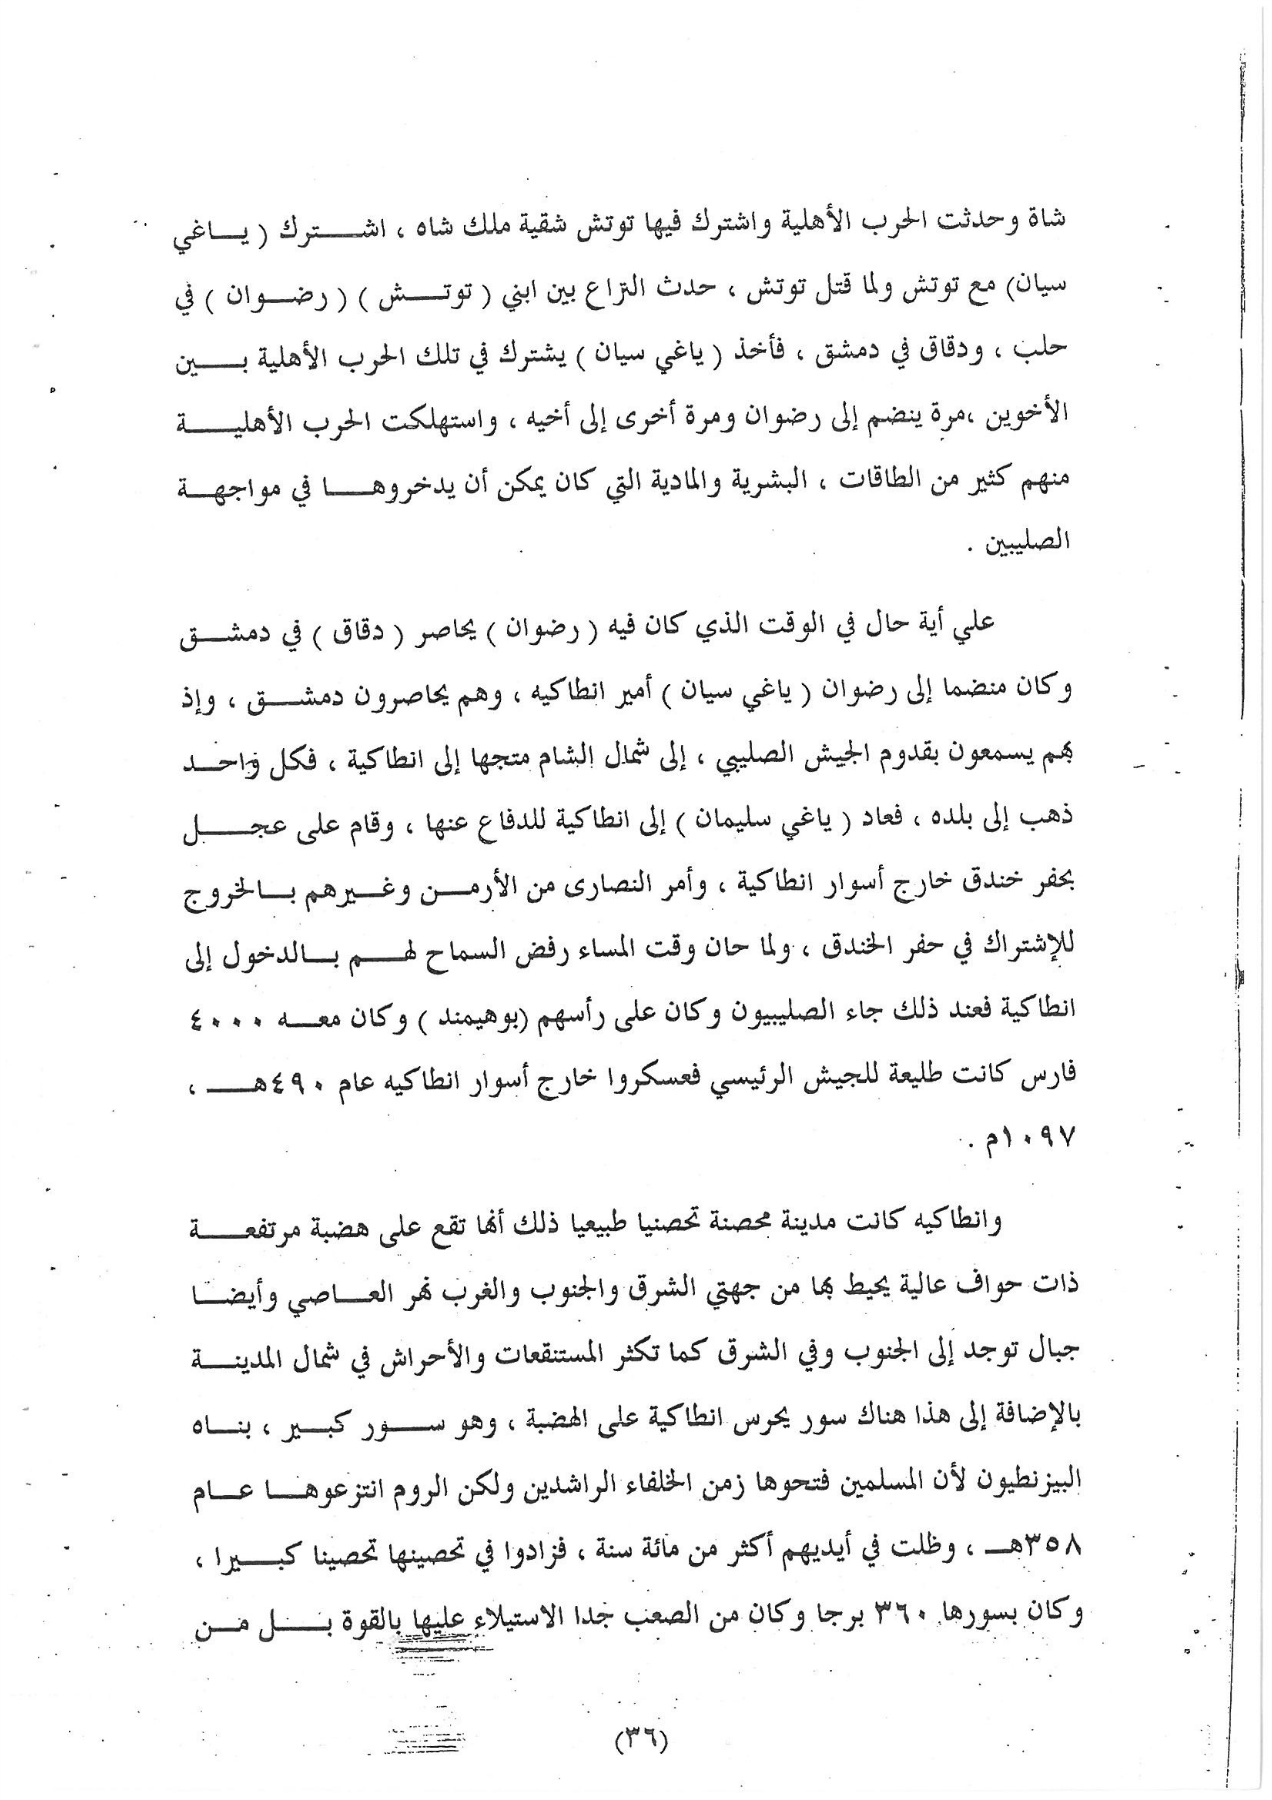 شاة وحدثت الحرب الأهلية واشترك فيها توتش شقية ملك شاه ، اشترك ( ياغي
سيان) مع توتش ولما قتل توتش ، حدث النزاع بين ابني ( توتش ) ( رضوان ) في
حلب ، ودقاق في دمشق ، فأخذ ( ياغي سيان ) يشترك في تلك الحرب الأهلية بين
الأخوين ،مرة ينضم إلى رضوان ومرة أخرى إلى أخيه ، واستهلكت الحرب الأهلية
منهم كثير من الطاقات ، البشرية والمادية التي كان يمكن أن يدخروها في مواجهة
الصليبين .
علي أية حال في الوقت الذي كان فيه ( رضوان ) يحاصر ( دقاق ) في دمشق
وكان منضما إلى رضوان ( ياغي سيان ) أمير انطاكيه ، وهم يحاصرون دمشق ، وإذ
بهم يسمعون بقدوم الجيش الصليبي ، إلى شمال الشام متجها إلى انطاكية ، فكل واحد
ذهب إلى بلده ، فعاد ( ياغي سليمان ) إلى انطاكية للدفاع عنها ، وقام على عجل
بحفر خندق خارج أسوار انطاكية ، وأمر النصارى من الأرمن وغيرهم بالخروج
للإشتراك في حفر الخندق ، ولما حان وقت المساء رفض السماح لهم بالدخول إلى
انطاكية فعند ذلك جاء الصليبيون وكان على رأسهم (بوهيمند ) وكان معه ٤٠٠٠
فارس كانت طليعة للجيش الرئيسي فعسكروا خارج أسوار انطاكيه عام ٤٩٠هـ ،
١٠٩٧م .
وانطاكيه كانت مدينة محصنة تحصنيا طبيعيا ذلك أنها تقع على هضبة مرتفعة
ذات حواف عالية يحيط بها من جهتي الشرق والجنوب والغرب نهر العاصي وأيضا
جبال توجد إلى الجنوب وفي الشرق كما تكثر المستنقعات والأحراش في شمال المدينة
بالإضافة إلى هذا هناك سور يحرس انطاكية على الهضبة ، وهو سور كبير ، بناه
البيزنطيون لأن المسلمين فتحوها زمن الخلفاء الراشدين ولكن الروم انتزعوها عام
٣٥٨هـ ، وظلت في أيديهم أكثر من مائة سنة ، فزادوا في تحصينها تحصينا كبيرا ،
وكان بسورها ٣٦٠ برجا وكان من الصعب جدا الاستيلاء عليها بالقوة بل من
(٣٦)